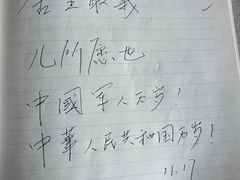 舍生取义
儿所愿也
中國军人万岁！
中華人民共和国万岁！
11.17